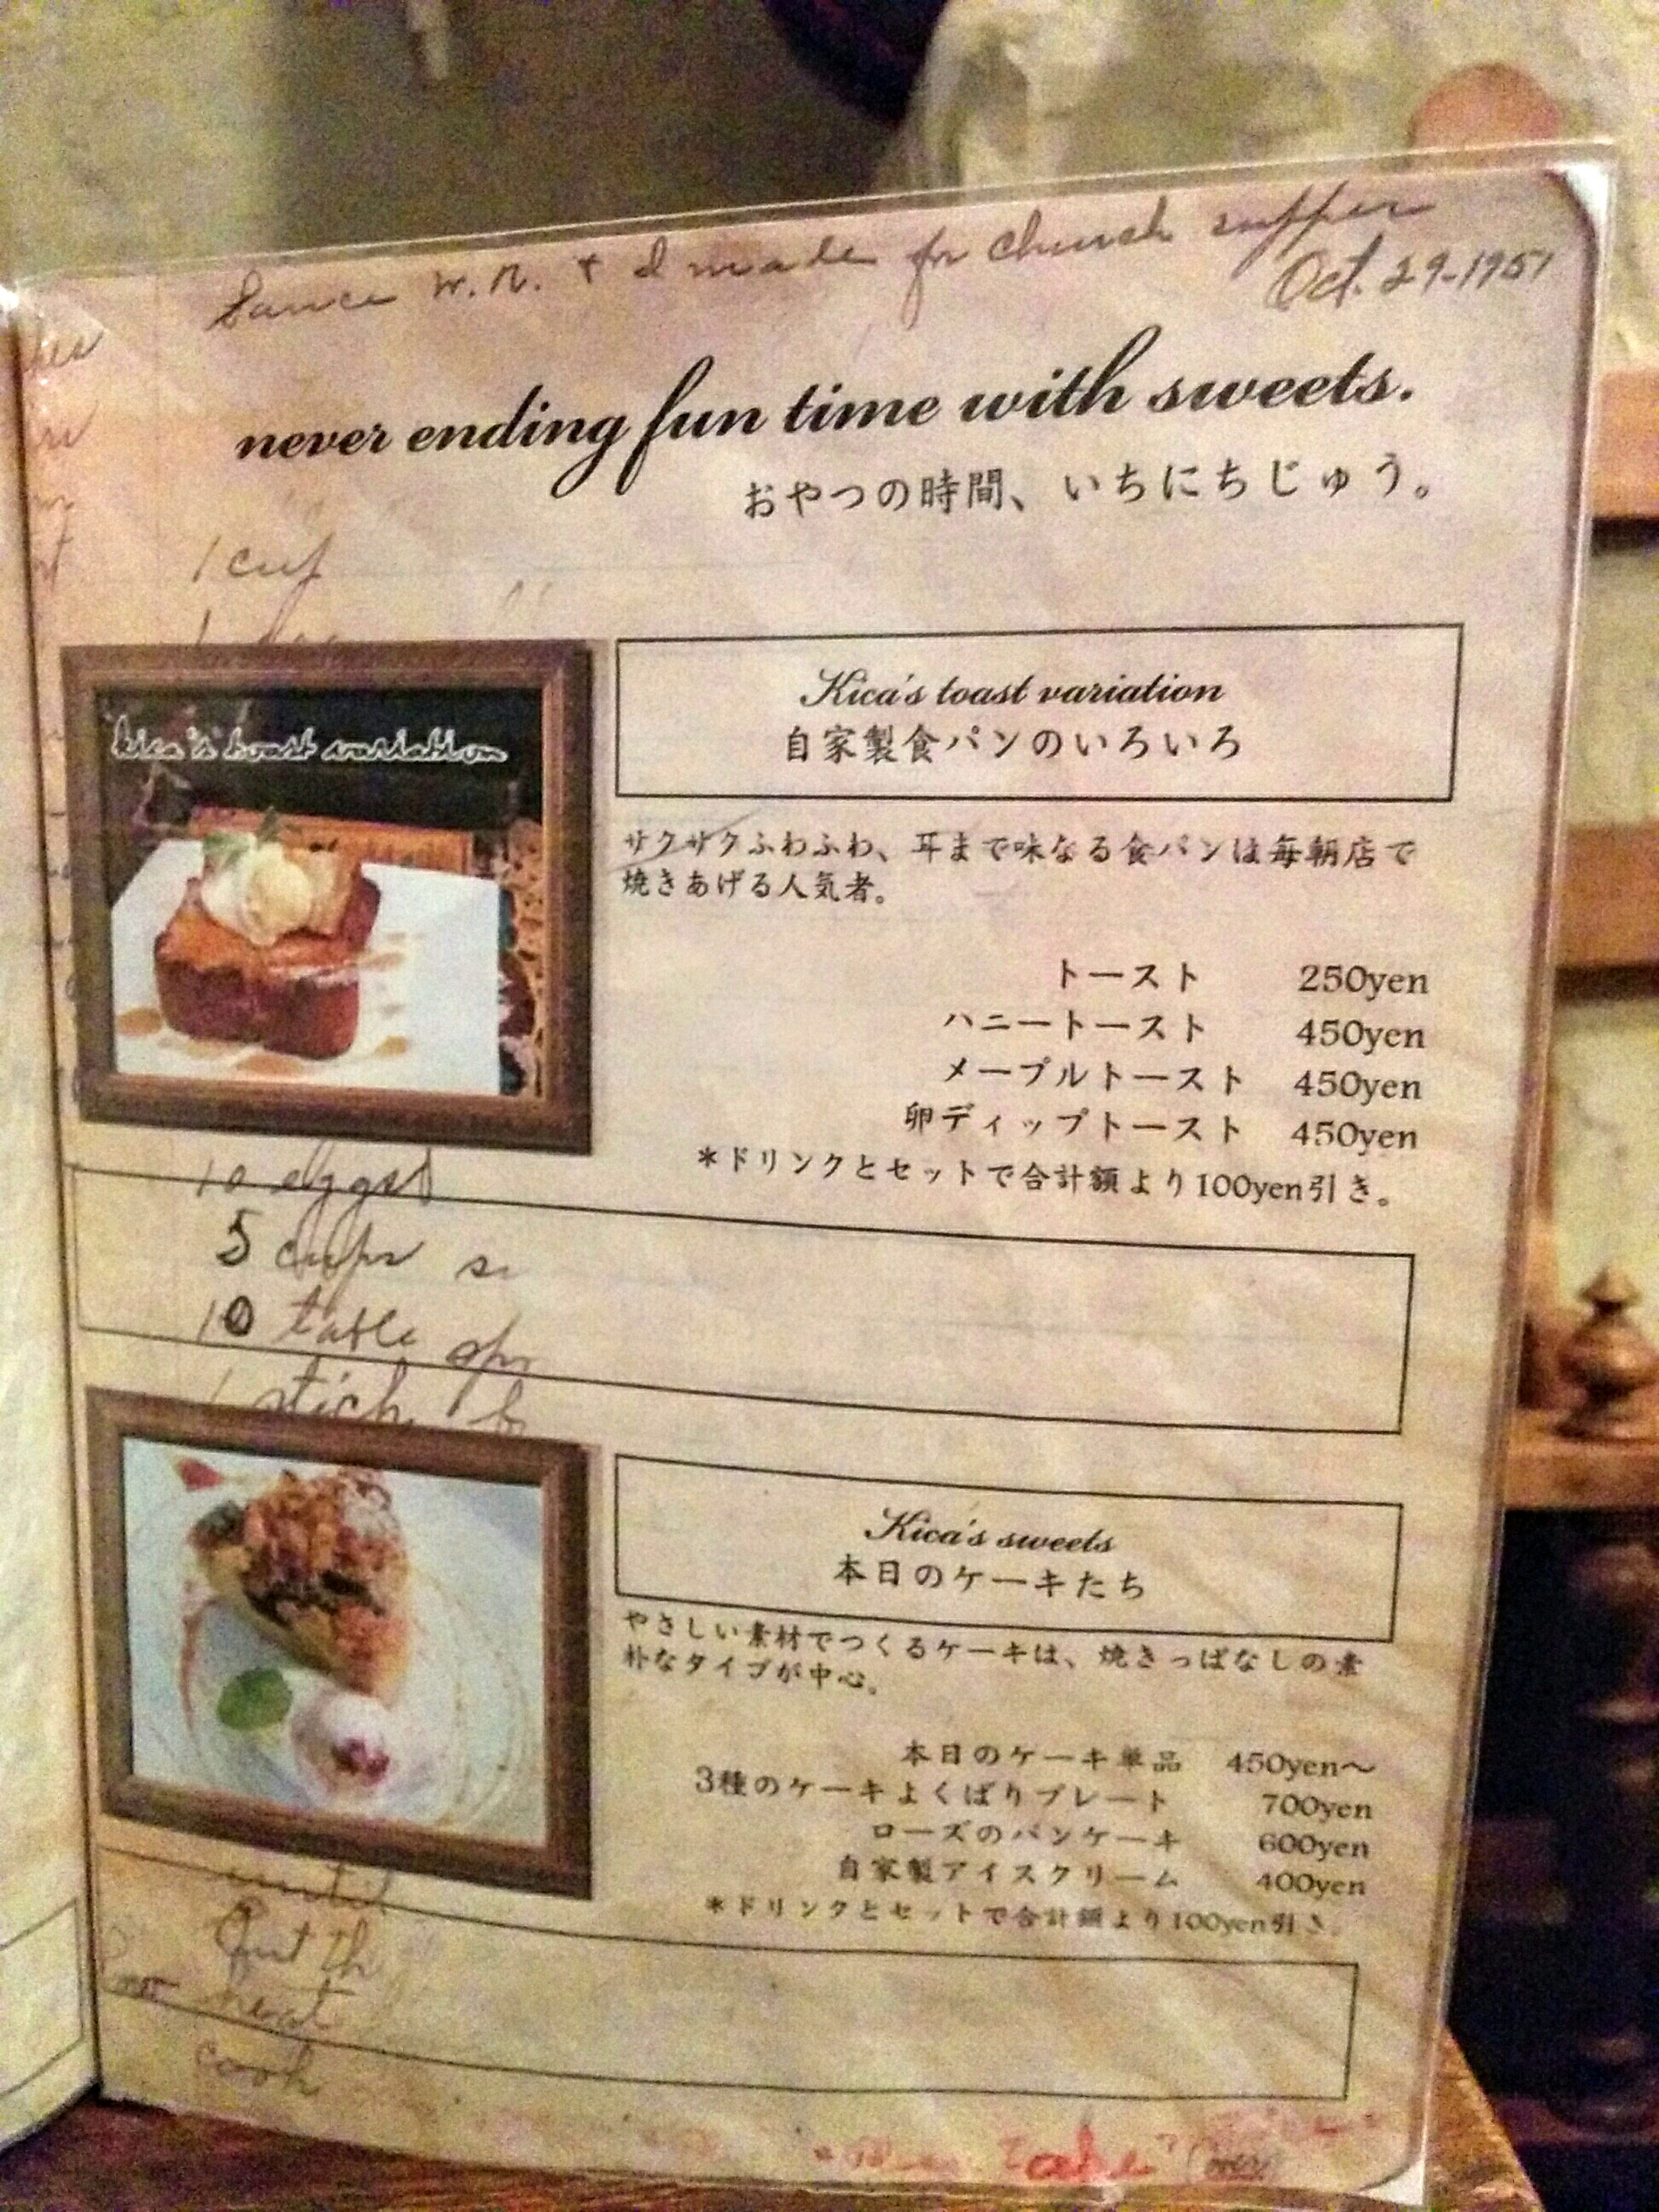 Sauce W.N. + I made for church supper
Oct. 29-1951
never ending fun time with sweets.
おやつの時間、いちにちじゅう。
1 cup
Kica's toast variation
自家製食パンのいろいろ
kica's toast variation
サクサクふわふわ、耳まで味なる食パンは毎朝店で
焼きあげる人気者。
トースト 250yen
ハニートースト 450yen
メープルトースト 450yen
卵ディップトースト 450yen
*ドリンクとセットで合計額より100yen引き。
10 eggs
5 cups
10 table
1 stick
Kica's sweets
本日のケーキたち
やさしい素材でつくるケーキは、焼きっぱなしの素
朴なタイプが中心。
本日のケーキ単品 450yen～
3種のケーキよくばりプレート 700yen
ローズのパンケーキ 600yen
自家製アイスクリーム 400yen
*ドリンクとセットで合計額より100yen引き。
until
Put th
heat
cook
cake (over)